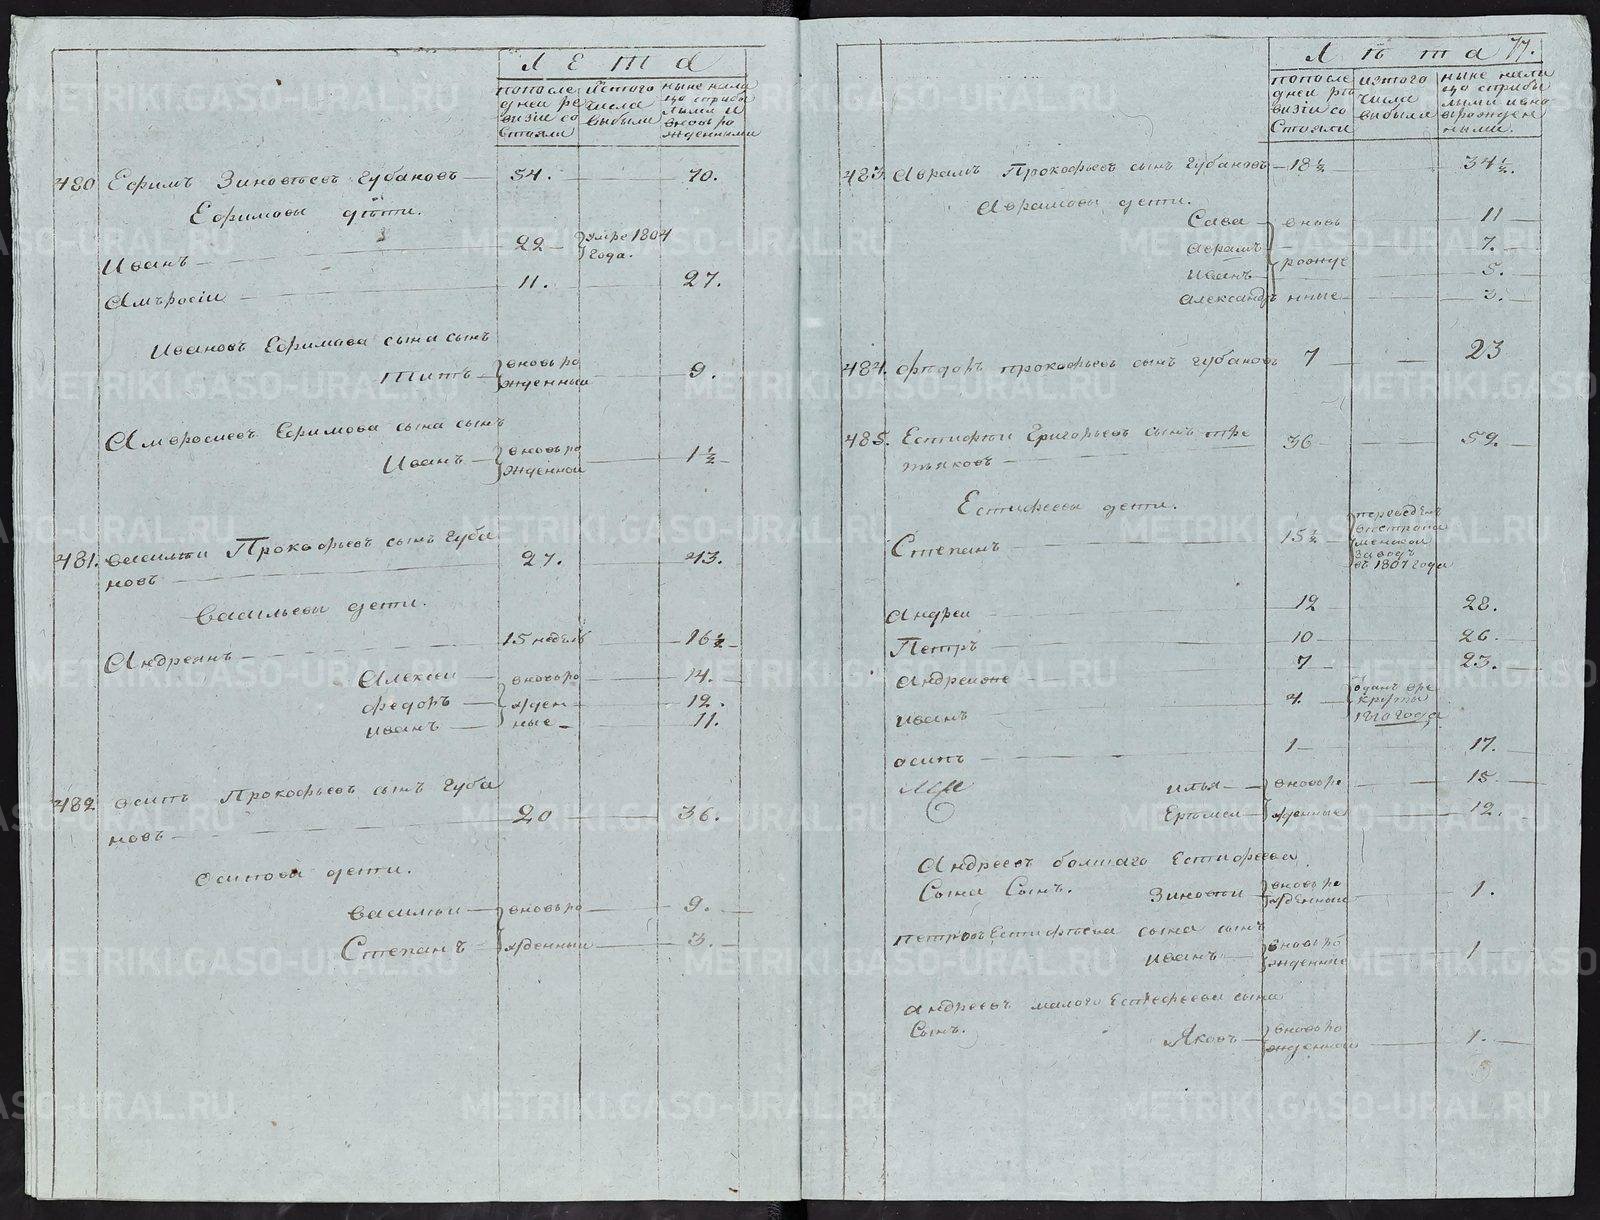 Л Е Т А
попосле дней ре визiи со стояли
изтого числа выбыли
ныне нали цо спрыбы лыми и вновь ро жденными
480 Ефимъ Зиновьевъ Губановъ 54. 70.
Ефимовы дѣти.
Иванъ 22 умре 1804 года.
Амъросiи 11. 27.
Ивановъ Ефимова сына сынъ
Титъ вновь ро жденный 9.
Амвросиевъ Ефимова сына сынъ
Иванъ вновь ро жденной 1½
481. Василѣи Прокофьевъ сынъ Губа
новъ 27. 43.
Васильевы дети.
Андреянъ 15 недель 16½
Алексей вновь ро 14.
Федоръ жден 12.
Иванъ ные 11.
482 Осипъ Прокофьевъ сынъ Губа
новъ 20 36.
Осиповы дети.
Василѣи вновь ро 9.
Степанъ жденныи 3.
Л ѣ т а 77.
попосле дней рѣ визiи со стояли
изтого числа выбыли
ныне нали цо спрыбы лыми ивно врожден ными.
483. Аврамъ Прокофьевъ сынъ Губановъ 18½ 34½.
Аврамовы дети.
Сава вновь 11
Аврамъ 7.
Иванъ рожде 5.
Александръ нные 3.
484. Фѣдоръ Прокофьевъ сынъ Губановъ 7 23
485. Естифѣи Григорьевъ сынъ тре 36 59.
тьяковъ
Естифеевы дети.
Степанъ 15½ переведенъ
заводъ
въ 1807 года
Андреи 12 28.
Петръ 10 26.
Андреиже 7 23.
Иванъ 4. Отданъ вре круты 1810 года
осипъ 1 17.
илья вновь ро 15
Ермолай жденные 12.
Андреевъ болшаго Естифеева
Сына Сынъ. Зиновѣи вновь ро жденныи 1.
Петровъ Естифѣева сына сынъ
Иванъ вновь ро жденные 1
Андреевъ малого Естифеева сына
Сынъ.
Яковъ вновь ро жденной 1.
METRIKI.GASO-URAL.RU